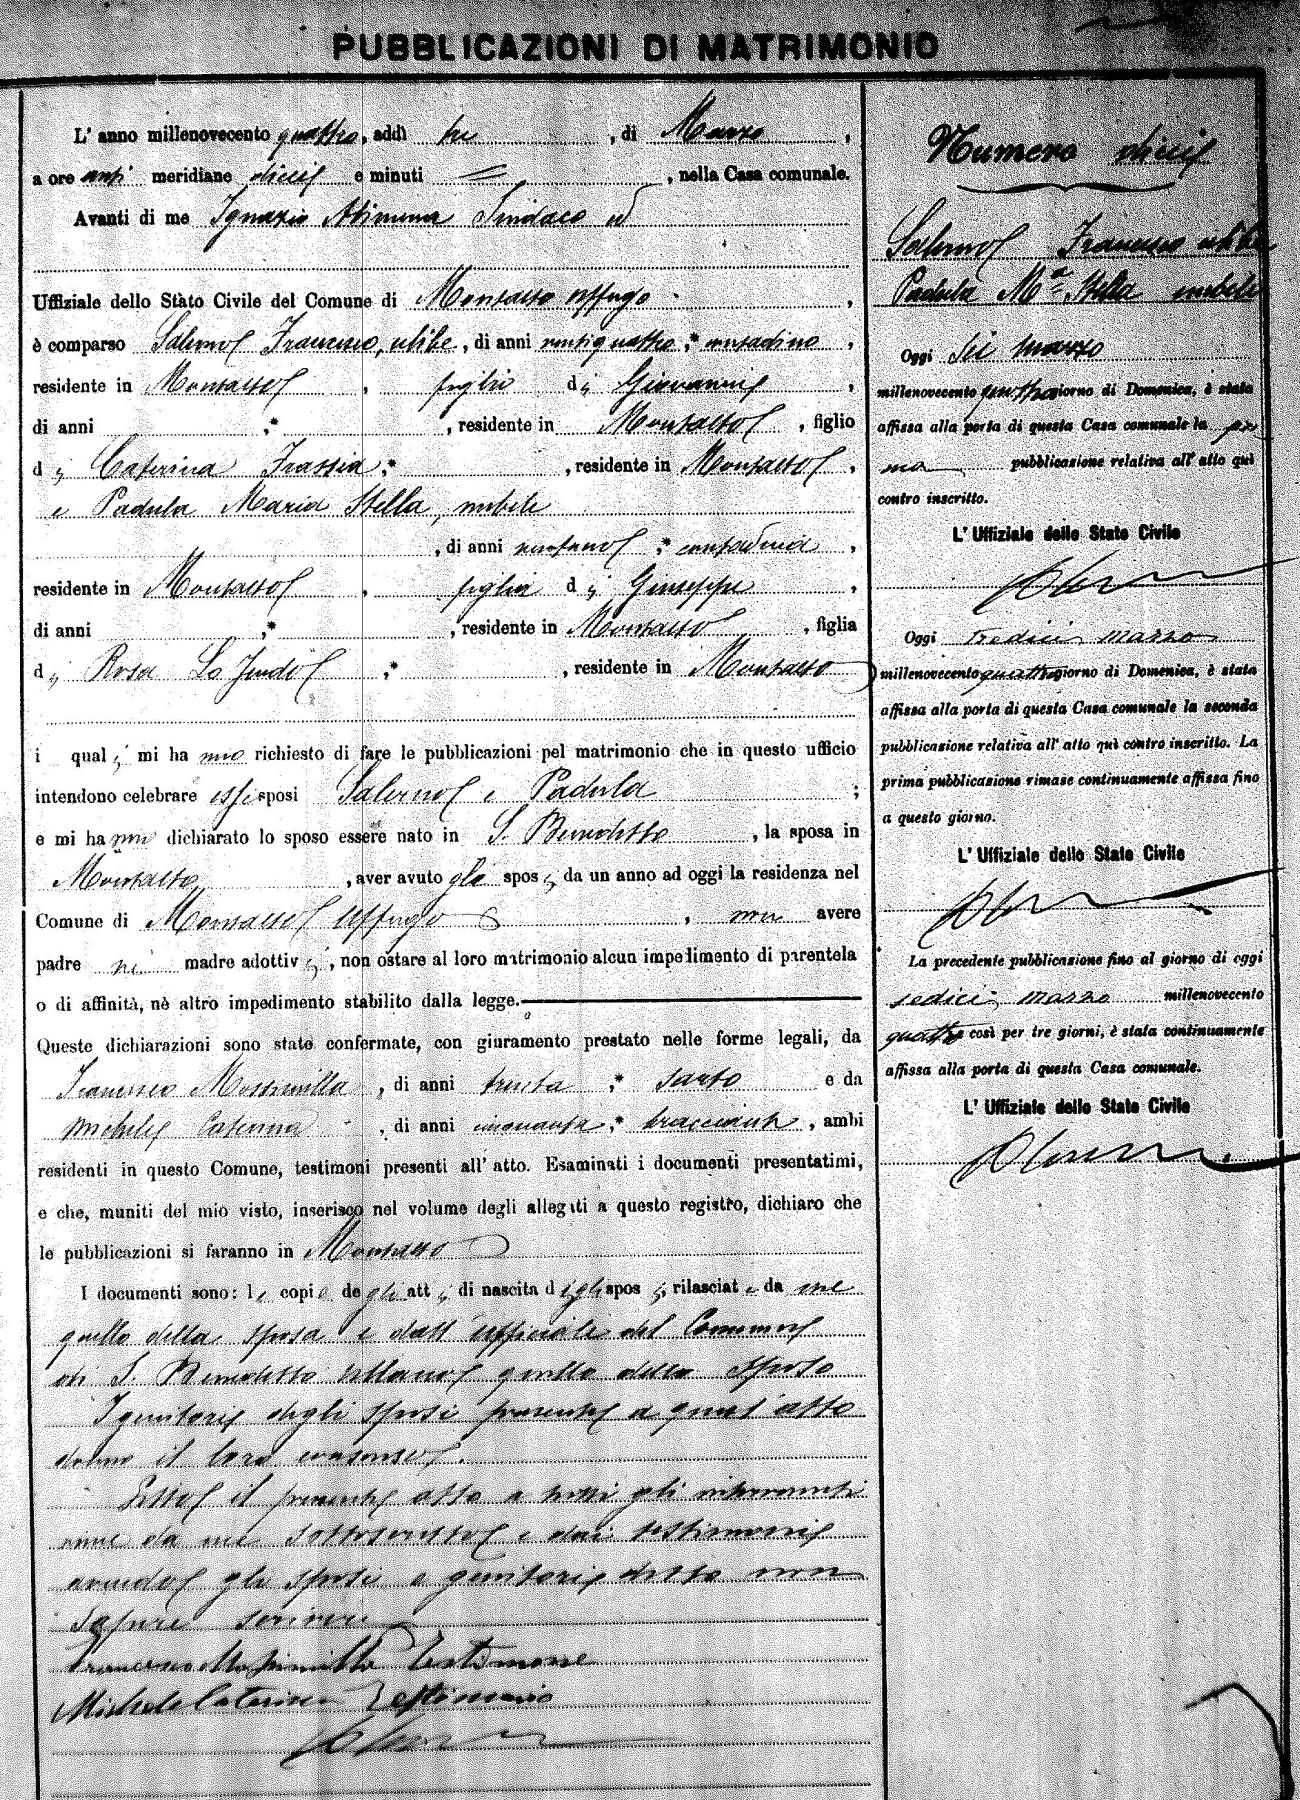 PUBBLICAZIONI DI MATRIMONIO
L' anno millenovecento quattro, addì tre, di Marzo,
a ore anti meridiane dieci e minuti =, nella Casa comunale.
Avanti di me Ignazio Sindaco ed
Uffiziale dello Stato Civile del Comune di Montalto Uffugo,
è comparso Salerno Francesco, celibe, di anni ventiquattro, * contadino,
residente in Montalto, figlio di Giovanni,
di anni , * , residente in Montalto, figlio
di Caterina Frassia, * , residente in Montalto,
e Padula Maria Stella, nubile
, di anni , * contadina,
residente in Montalto, figlia di Giuseppe,
di anni , * , residente in Montalto, figlia
di Rosa Lo , * , residente in Montalto
i quali mi hanno richiesto di fare le pubblicazioni pel matrimonio che in questo ufficio
intendono celebrare essi sposi Salerno e Padula ;
e mi hanno dichiarato lo sposo essere nato in S. Benedetto, la sposa in
Montalto, aver avuto gli sposi da un anno ad oggi la residenza nel
Comune di Montalto Uffugo, non avere
padre nè madre adottivi, non ostare al loro matrimonio alcun impedimento di parentela
o di affinità, nè altro impedimento stabilito dalla legge.
Queste dichiarazioni sono state confermate, con giuramento prestato nelle forme legali, da
Francesco Massimilla, di anni trenta, * sarto e da
Michele Caterina, di anni cinquanta, * bracciante, ambi
residenti in questo Comune, testimoni presenti all' atto. Esaminati i documenti presentatimi,
e che, muniti del mio visto, inserisco nel volume degli allegati a questo registro, dichiaro che
le pubblicazioni si faranno in Montalto
I documenti sono: le copie degli atti di nascita degli sposi, rilasciate da me
quello della sposa e dall' ufficiale del Comune
di S. Benedetto Ullano quello dello sposo
I genitori degli sposi presenti a quest' atto
danno il loro consenso.
Letto il presente atto a tutti gli intervenuti
viene da me sottoscritto e dai testimoni
avendo gli sposi e genitori detto non
sapere scrivere
Francesco Massimilla Testimone
Michele Caterina Testimonio
Numero dieci
Salerno Francesco celibe
Padula Mª Stella nubile
Oggi sei marzo
millenovecento quattro giorno di Domenica, è stata
affissa alla porta di questa Casa comunale la pri
ma pubblicazione relativa all' atto quì
contro inscritto.
L' Uffiziale dello Stato Civile
Oggi tredici marzo
millenovecento quattro giorno di Domenica, è stata
affissa alla porta di questa Casa comunale la seconda
pubblicazione relativa all' atto quì contro inscritto. La
prima pubblicazione rimase continuamente affissa fino
a questo giorno.
L' Uffiziale dello Stato Civile
La precedente pubblicazione fino al giorno di oggi
sedici marzo millenovecento
quattro così per tre giorni, è stata continuamente
affissa alla porta di questa Casa comunale.
L' Uffiziale dello Stato Civile